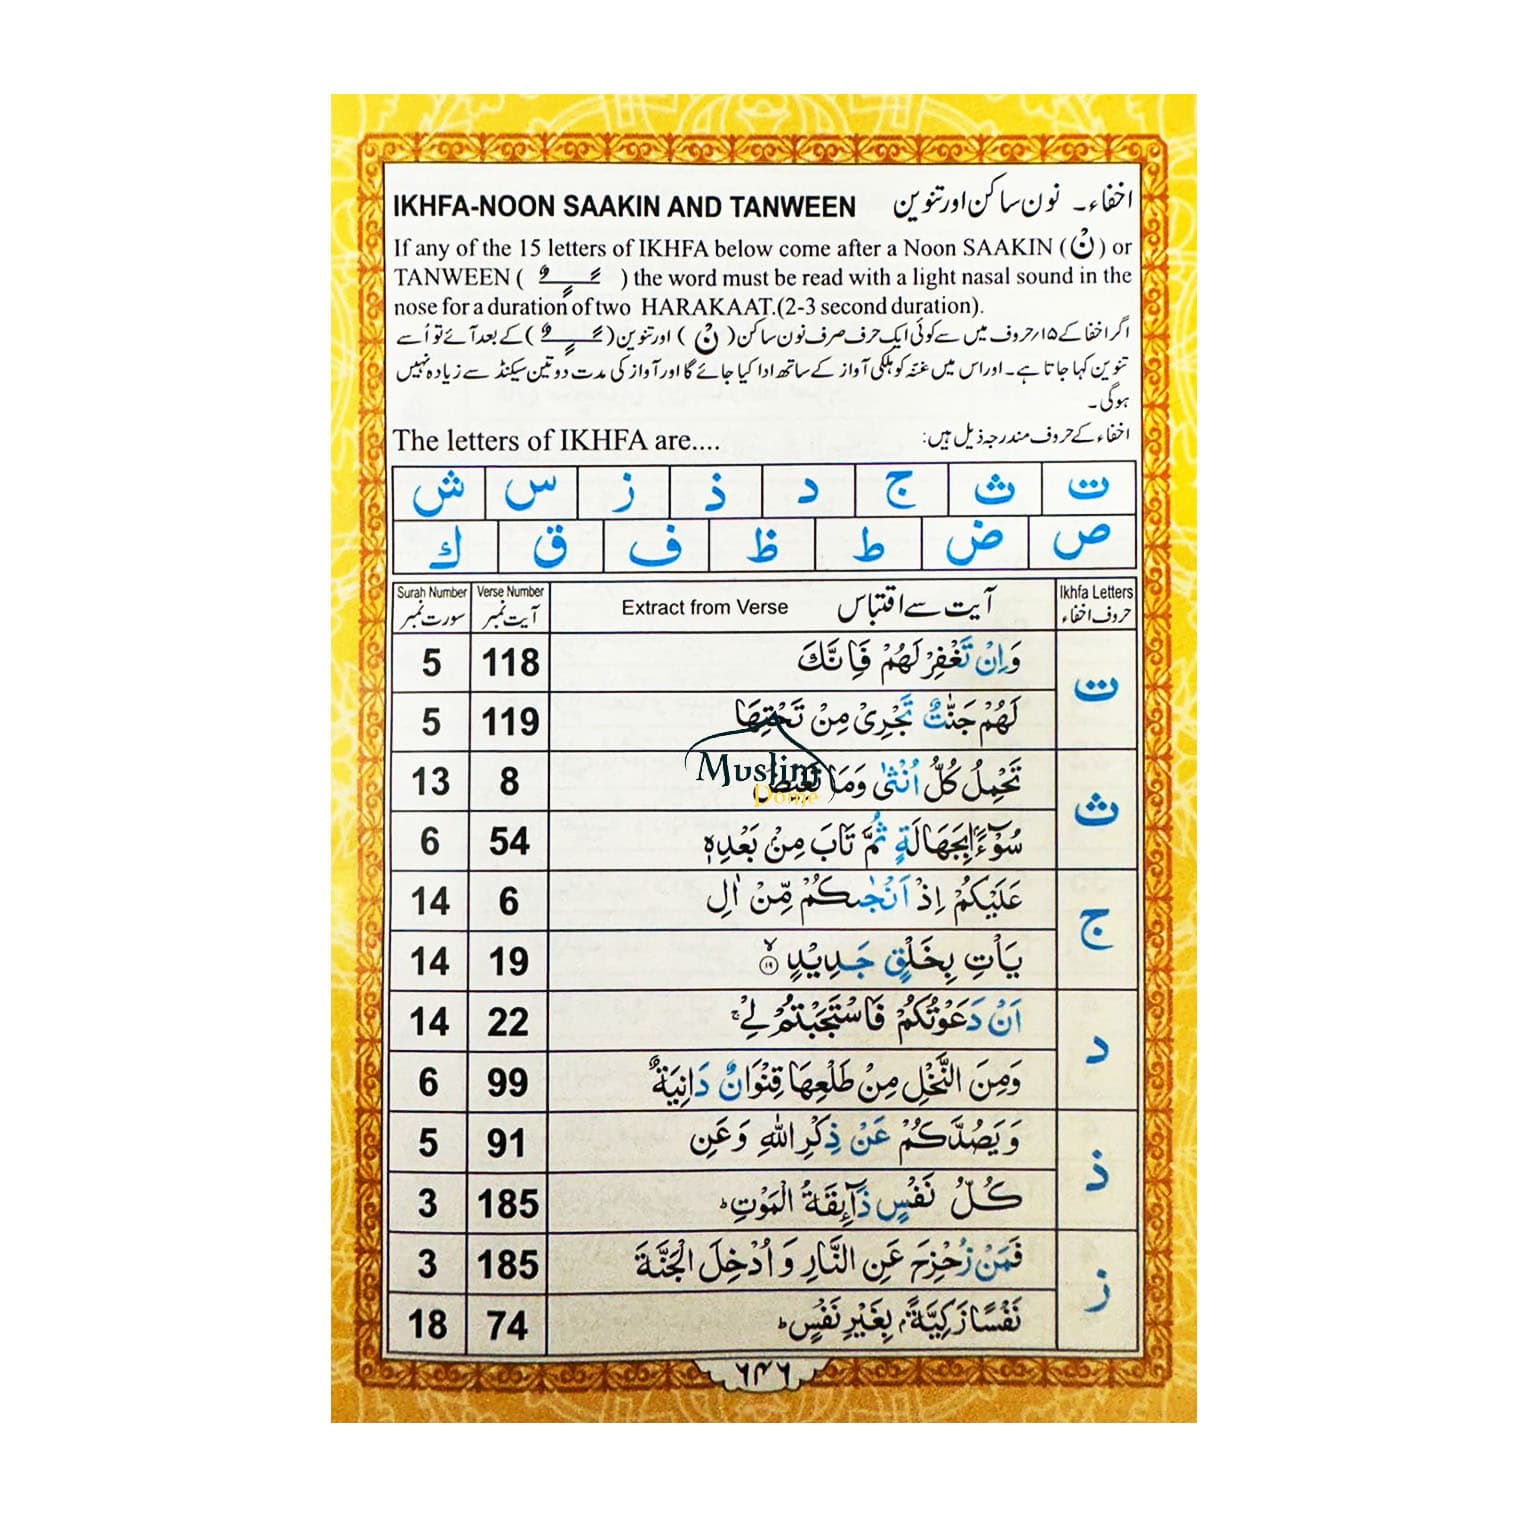 IKHFA-NOON SAAKIN AND TANWEEN اخفاء۔ نون ساکن اور تنوین
If any of the 15 letters of IKHFA below come after a Noon SAAKIN (نْ) or
TANWEEN ( ــًــٍــٌ ) the word must be read with a light nasal sound in the
nose for a duration of two HARAKAAT.(2-3 second duration).
اگر اخفا کے ۱۵/حروف میں سے کوئی ایک حرف صرف نون ساکن( نْ ) اور تنوین(ــًــٍــٌ)کے بعد آئے تو اُسے
تنوین کہا جاتا ہے۔ اور اس میں غنّہ کو ہلکی آواز کے ساتھ ادا کیا جائے گا اور آواز کی مدت دو تین سیکنڈ سے زیادہ نہیں
ہوگی۔
The letters of IKHFA are.... اخفاء کے حروف مندرجہ ذیل ہیں:
ت ث ج د ذ ز س ش
ص ض ط ظ ف ق ك
Surah Number Verse Number Extract from Verse آیت سے اقتباس Ikhfa Letters
سورت نمبر آیت نمبر حروف اخفاء
5 118 وَاِنْ تَغْفِرْ لَهُمْ فَاِنَّكَ
ت
5 119 لَهُمْ جَنّٰتٌ تَجْرِىْ مِنْ تَحْتِهَا
13 8 تَحْمِلُ كُلُّ اُنْثٰى وَمَا تَغِيْضُ
ث
6 54 سُوْٓءًۢا بِجَهَالَةٍ ثُمَّ تَابَ مِنْۢ بَعْدِهٖ
14 6 عَلَيْكُمْ اِذْ اَنْجٰىكُمْ مِّنْ اٰلِ
ج
14 19 يَاْتِ بِخَلْقٍ جَدِيْدٍ ۙ ۱۹
14 22 اَنْ دَعَوْتُكُمْ فَاسْتَجَبْتُمْ لِىْ ۚ
د
6 99 وَمِنَ النَّخْلِ مِنْ طَلْعِهَا قِنْوَانٌ دَانِيَةٌ
5 91 وَيَصُدَّكُمْ عَنْ ذِكْرِ اللّٰهِ وَعَنِ
ذ
3 185 كُلُّ نَفْسٍ ذَآئِقَةُ الْمَوْتِ ؕ
3 185 فَمَنْ زُحْزِحَ عَنِ النَّارِ وَاُدْخِلَ الْجَنَّةَ
ز
18 74 نَفْسًا زَكِيَّةًۢ بِغَيْرِ نَفْسٍ ؕ
۶۴۶
Muslim
Dome